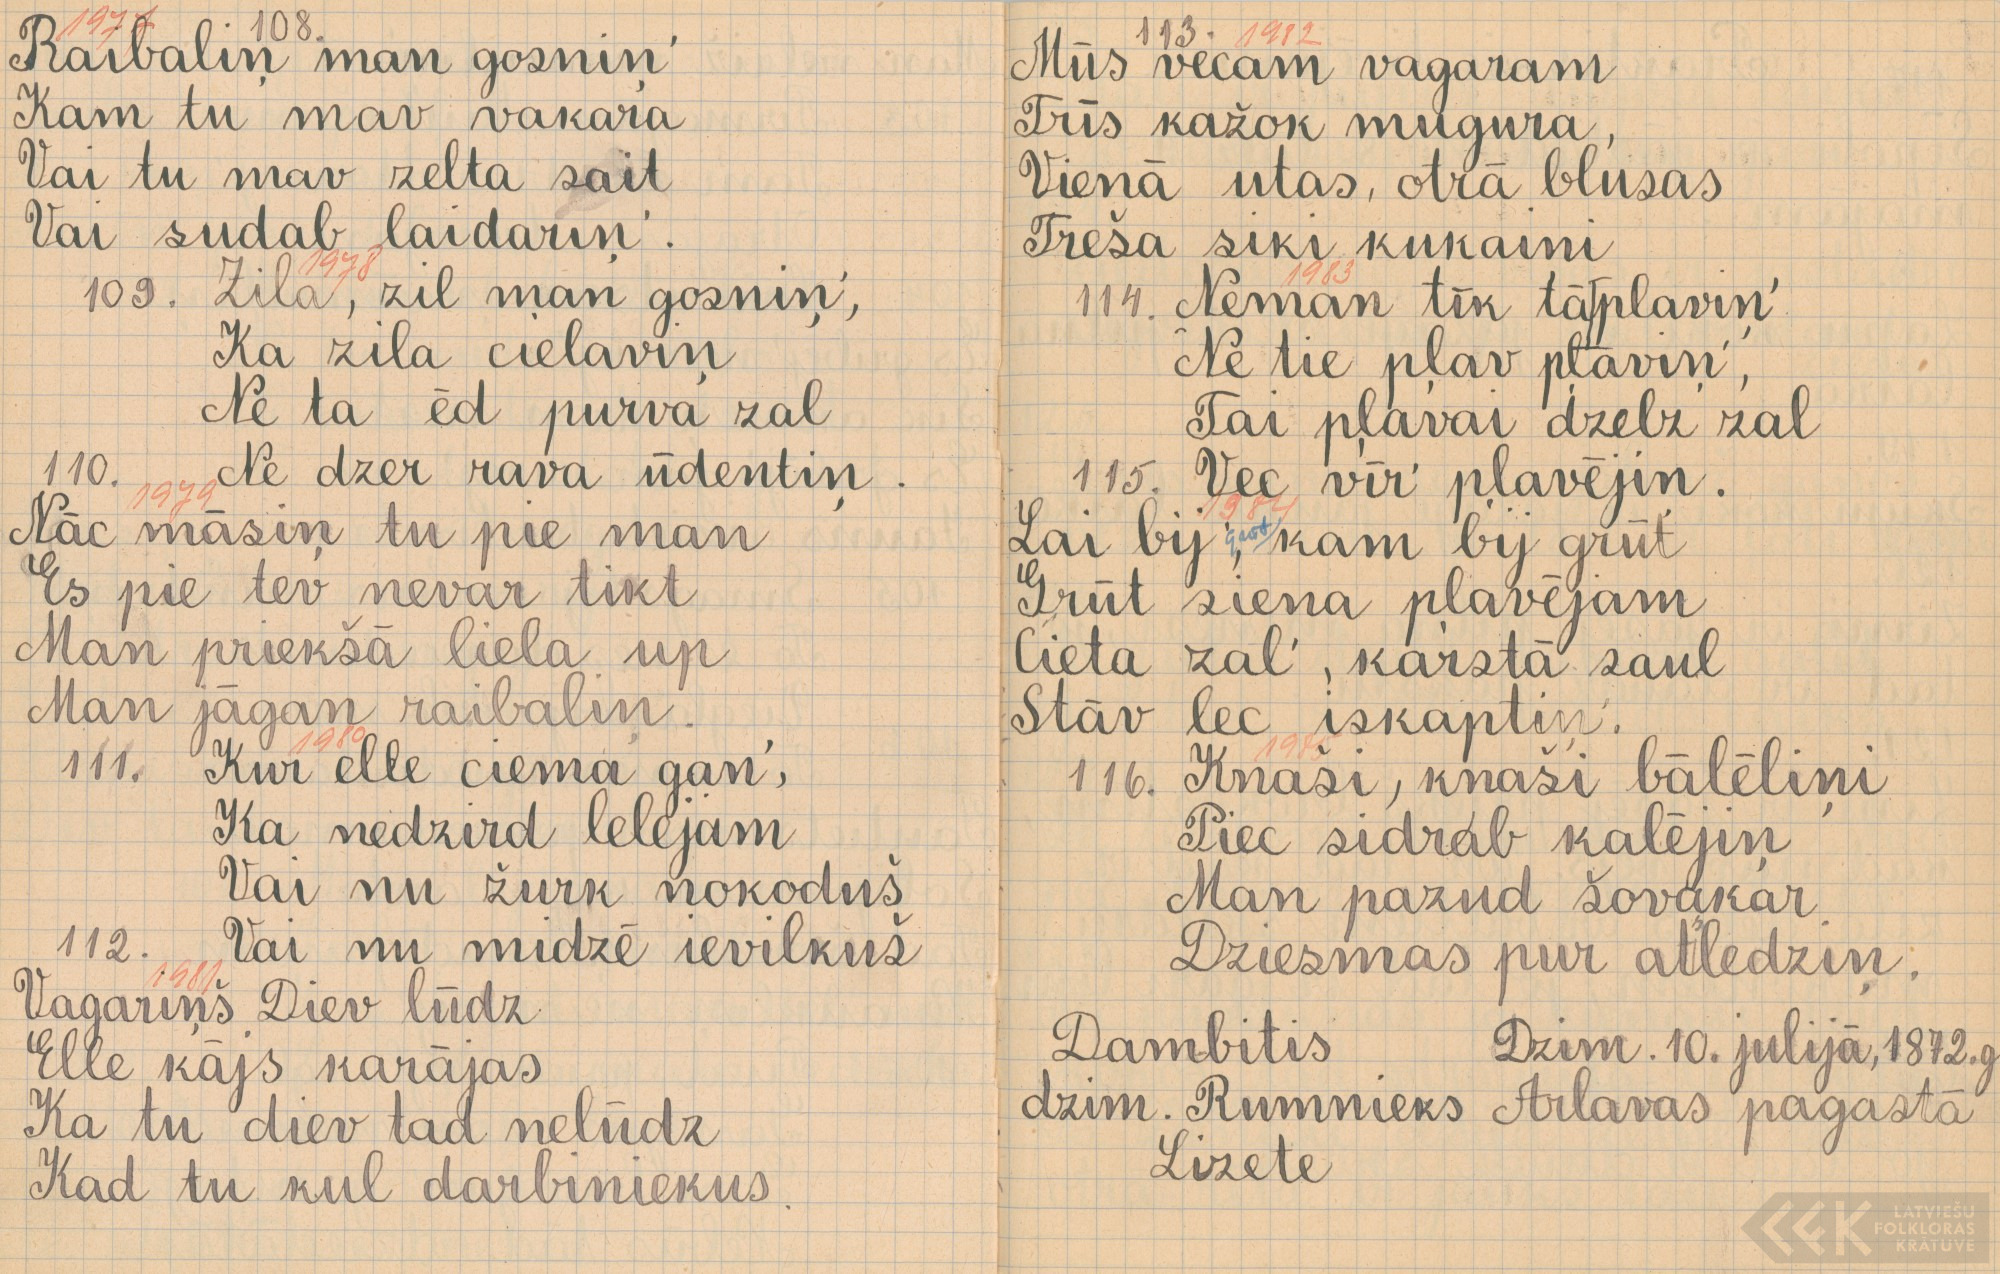 1977 108.
Raibaliņ man gosniņ'
Kam tu mav vakara
Vai tu mav zelta sait
Vai sudab laidariņ'.
1978
109. Zila, zil man gosniņ',
Ka zila cielaviņ
Ne ta ēd purva zal
110. Ne dzer rava ūdentiņ.
1979
Nāc māsiņ tu pie man
Es pie tev nevar tikt
Man priekšā liela up
Man jāgan raibaliņ.
1980
111. Kur elle ciema gan',
Ka nedzird lelējam
Vai nu žurk nokoduš
112. Vai nu midzē ievilkuš
1981
Vagariņš Diev lūdz
Elle kājs karājas
Ka tu diev tad nelūdz
Kad tu kul darbiniekus.
113. 1982
Mūs vecam vagaram
Trīs kažok mugura,
Vienā utas, otrā blusas
Treša siki kukaini
1983
114. Neman tīk tā plaviņ'
Ne tie pļav pļāviņ',
Tai pļavai dzelz zal
115. Vec vīr' pļavējiņ.
1984
Lai bij', grūt kam bij grūt
Grūt siena pļavējam
Cieta zal', karstā saul
Stāv lec iskaptiņ'.
116. Knaši, knaši bālēliņi
Piec sidrab kalējiņ
Man pazud šovakar
Dziesmas pur atledziņ.
Dambitis Dzim. 10. julijā, 1872. g
dzim. Rumnieks Arlavas pagastā
Lizete
LATVIEŠU
FOLKLORAS
KRĀTUVE